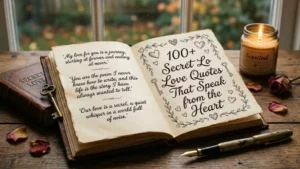 "My love for you is a journey,
starting at forever and ending
at never."
"You are the poem I never
knew how to write, and this
life is the story I have
always wanted to tell."
"Our love is a secret, a quiet
whisper in a world full
of noise."
100+
Secret Lo
Love Quotes
That Speak
from the
Heart